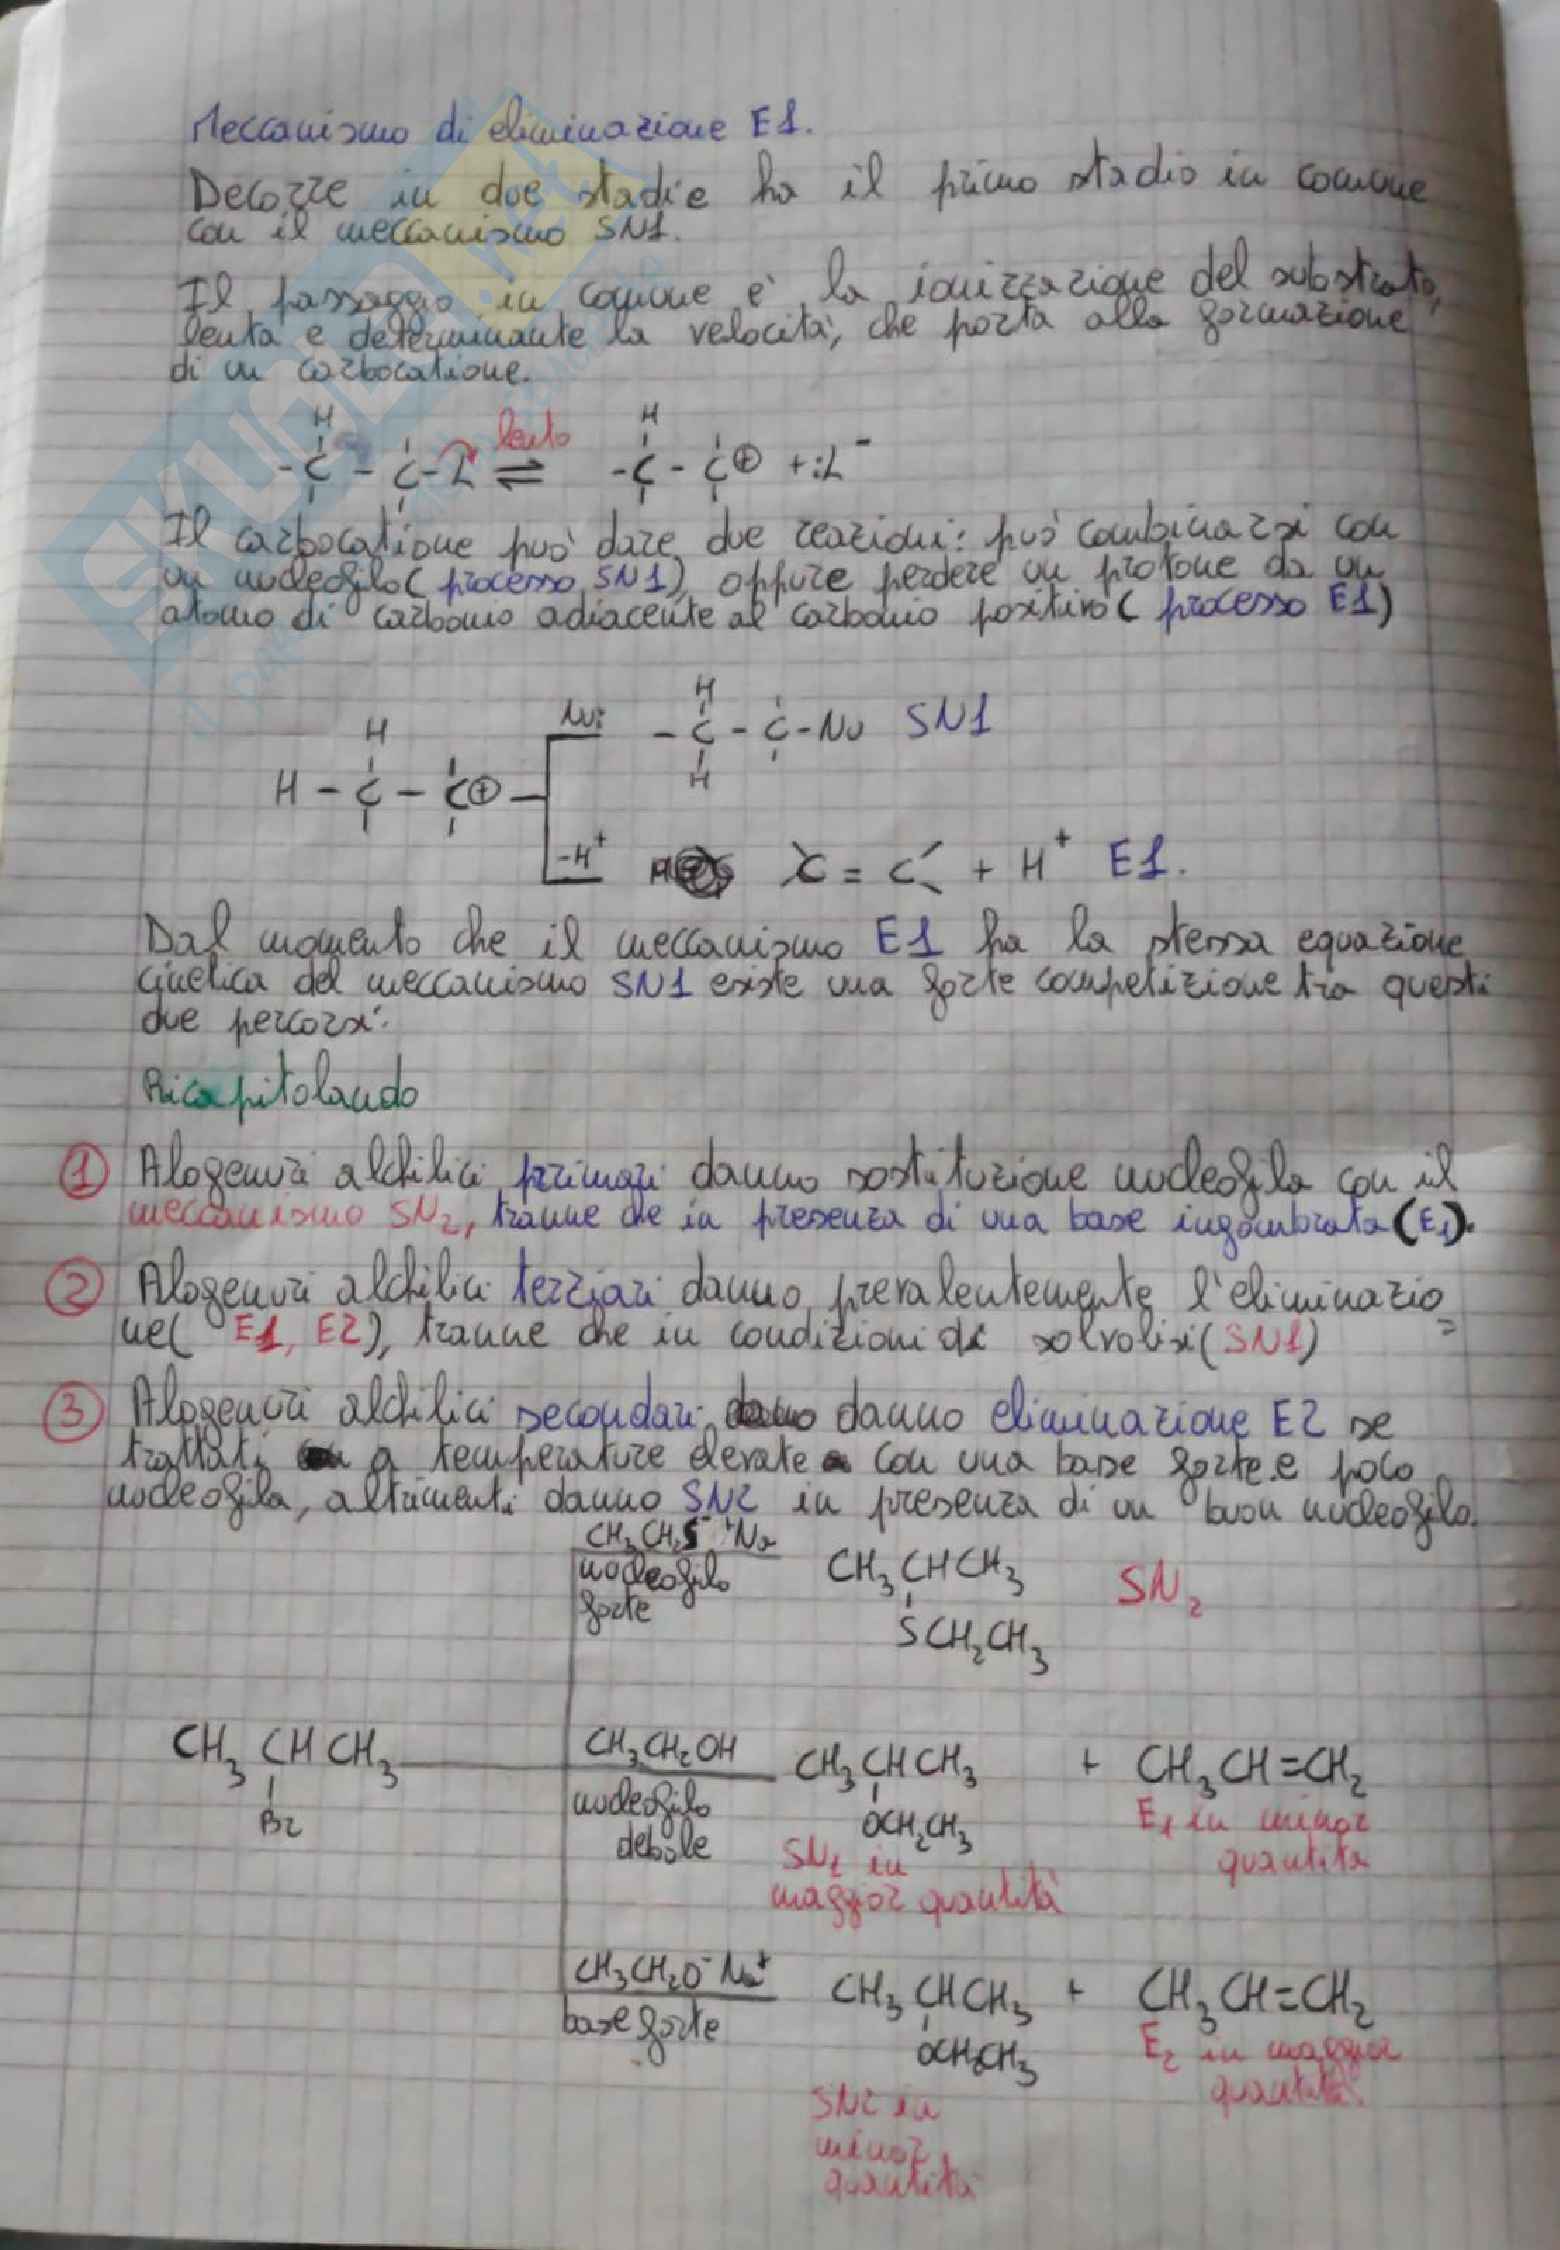 Meccanismo di eliminazione E1.
Decorre in due stadi e ha il primo stadio in comune
con il meccanismo SN1.
Il passaggio in comune è la ionizzazione del substrato,
lenta e determinante la velocità, che porta alla formazione
di un carbocatione.
H lento H
-C-C-L ⇌ -C-C⊕ + :L⁻
Il carbocatione può dare due reazioni: può combinarsi con
un nucleofilo (processo SN1), oppure perdere un protone da un
atomo di carbonio adiacente al carbonio positivo (processo E1)
H
Nu: -C-C-Nu SN1
H
H
H-C-C⊕
-H⁺ C=C + H⁺ E1.
Dal momento che il meccanismo E1 ha la stessa equazione
cinetica del meccanismo SN1 esiste una forte competizione tra questi
due percorsi.
Ricapitolando
1 Alogenuri alchilici primari danno sostituzione nucleofila con il
meccanismo SN2, tranne che in presenza di una base ingombrata (E1).
2 Alogenuri alchilici terziari danno prevalentemente l'eliminazio
ne( E1, E2), tranne che in condizioni di solvolisi (SN1)
3 Alogenuri alchilici secondari danno eliminazione E2 se
trattati a temperature elevate con una base forte e poco
nucleofila, altrimenti danno SN2 in presenza di un buon nucleofilo.
CH3CH2S⁻ ⁺Na
nucleofilo
forte
CH3CHCH3 SN2
SCH2CH3
CH3CHCH3
Br
CH3CH2OH
nucleofilo
debole
CH3CHCH3 + CH3CH=CH2
OCH2CH3
SN1 in
maggior quantità
E1 in minor
quantità
CH3CH2O⁻Na⁺
base forte
CH3CHCH3 + CH3CH=CH2
OCH2CH3
SN2 in
minor
quantità
E2 in maggior
quantità.
SKUOLA.net